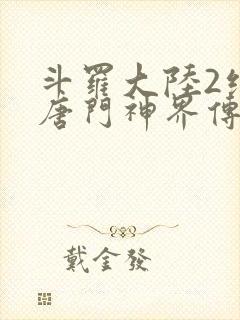 斗羅大陸2絕
唐門神界傳
戴金發